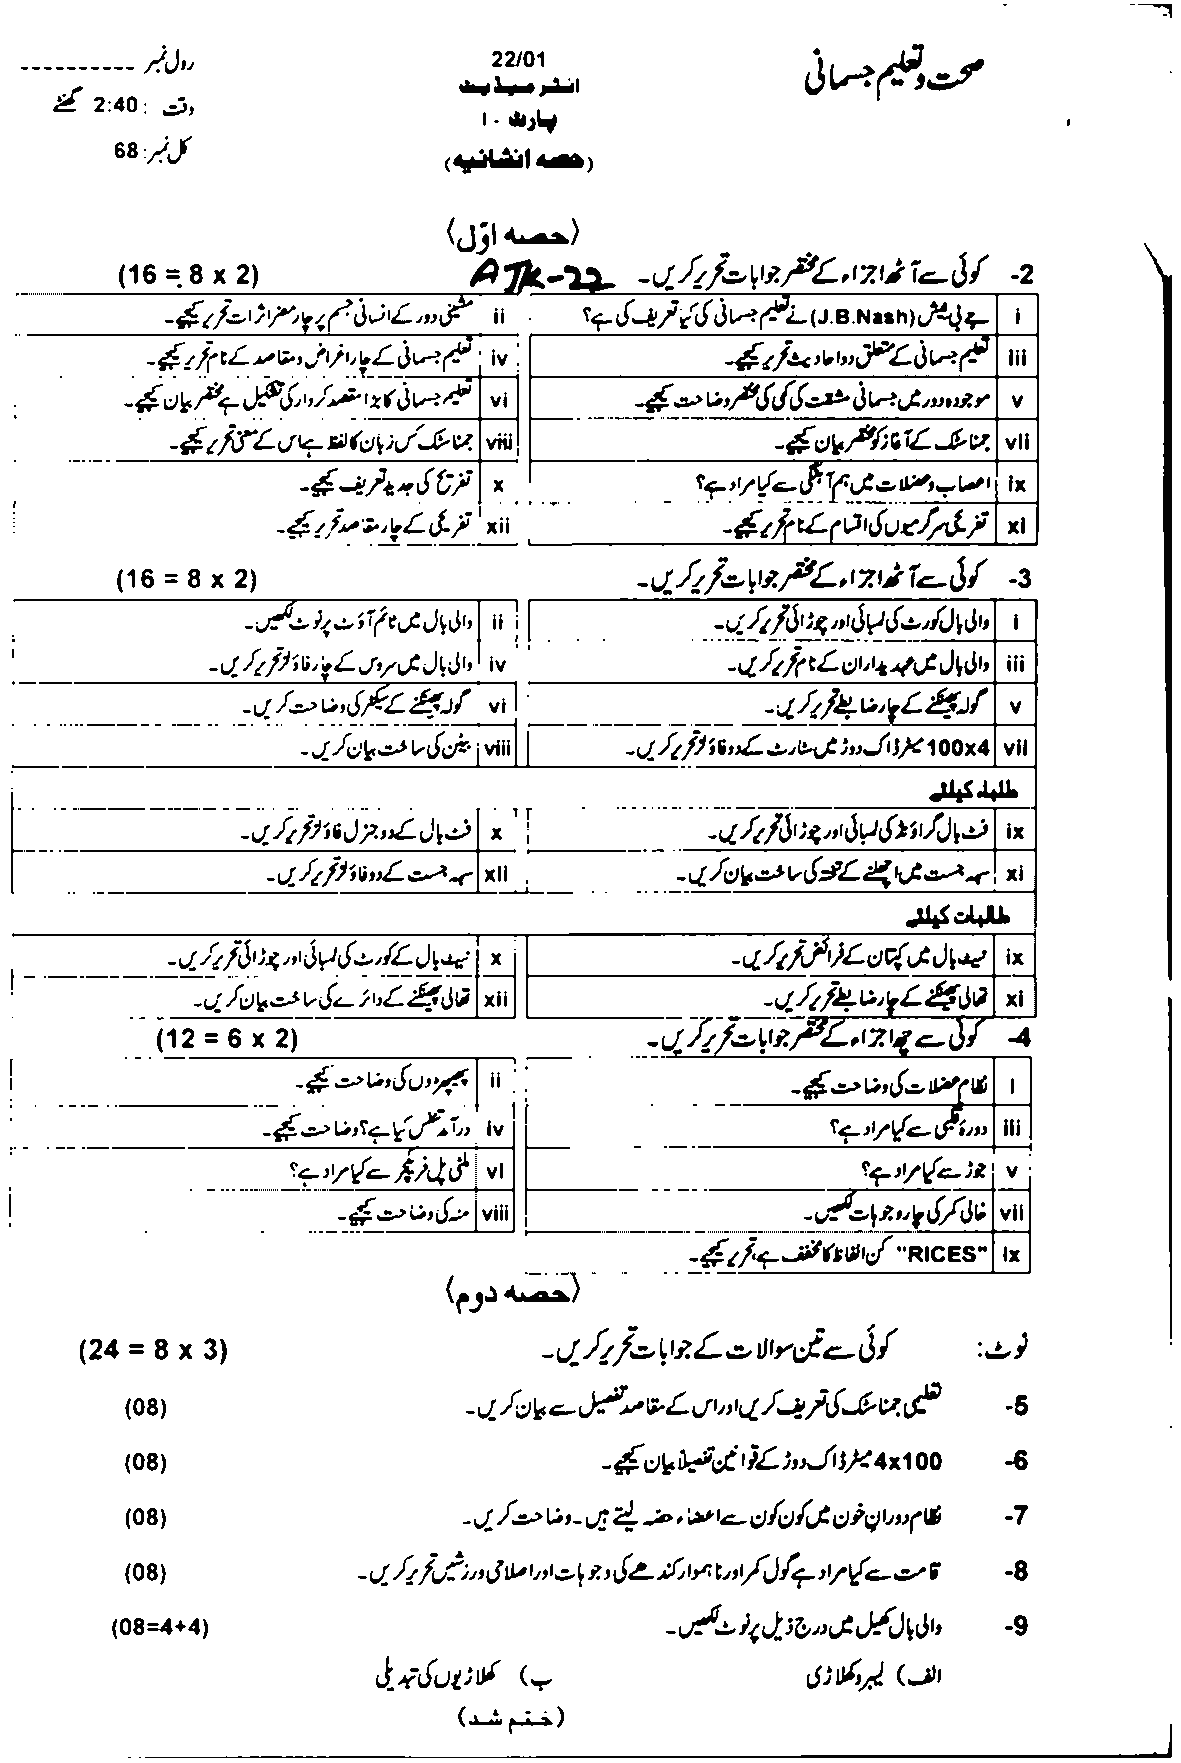 صحت و تعلیم جسمانی
22/01
رول نمبر ----------
انٹرمیڈیٹ
وقت : 2:40 گھنٹے
پارٹ - ۱
کل نمبر: 68
(حصہ انشائیہ)
(حصہ اوّل)
2- کوئی سے آٹھ اجزاء کے مختصر جوابات تحریر کریں۔ ATK-22 (16 = 8 x 2)
i جے بی نیش (J.B.Nash) نے تعلیم جسمانی کی کیا تعریف کی ہے؟ ii مشینی دور کے انسانی جسم پر چار مضر اثرات تحریر کیجیے۔
iii تعلیم جسمانی کے متعلق دو احادیث تحریر کیجیے۔ iv تعلیم جسمانی کے چار اغراض و مقاصد کے نام تحریر کیجیے۔
v موجودہ دور میں جسمانی مشقت کی کمی کی مختصر وضاحت کیجیے۔ vi تعلیم جسمانی کا بڑا مقصد کردار کی تشکیل ہے مختصر بیان کیجیے۔
vii جمناسٹک کے آغاز کو مختصر بیان کیجیے۔ viii جمناسٹک کس زبان کا لفظ ہے اس کے معنی تحریر کیجیے۔
ix اعصاب و عضلات میں ہم آہنگی سے کیا مراد ہے؟ x تفریح کی جدید تعریف کیجیے۔
xi تفریحی سرگرمیوں کی اقسام کے نام تحریر کیجیے۔ xii تفریحی کے چار مقاصد تحریر کیجیے۔
3- کوئی سے آٹھ اجزاء کے مختصر جوابات تحریر کریں۔ (16 = 8 x 2)
i والی بال کورٹ کی لمبائی اور چوڑائی تحریر کریں۔ ii والی بال میں ٹائم آؤٹ پر نوٹ لکھیں۔
iii والی بال میں عہدیداران کے نام تحریر کریں۔ iv والی بال میں سروس کے چار فاؤلز تحریر کریں۔
v گولہ پھینکنے کے چار ضابطے تحریر کریں۔ vi گولہ پھینکنے کے سیکٹر کی وضاحت کریں۔
vii 100x4 میٹر ڈاک دوڑ میں سٹارٹ کے دو فاؤلز تحریر کریں۔ viii بیٹن کی ساخت بیان کریں۔
طلباء کیلئے
ix فٹ بال گراؤنڈ کی لمبائی اور چوڑائی تحریر کریں۔ x فٹ بال کے دو جنرل فاؤلز تحریر کریں۔
xi سہ جست میں اچھلنے کے تختہ کی ساخت بیان کریں۔ xii سہ جست کے دو فاؤلز تحریر کریں۔
طالبات کیلئے
ix نیٹ بال میں کپتان کے فرائض تحریر کریں۔ x نیٹ بال کے کورٹ کی لمبائی اور چوڑائی تحریر کریں۔
xi تھالی پھینکنے کے چار ضابطے تحریر کریں۔ xii تھالی پھینکنے کے دائرے کی ساخت بیان کریں۔
4- کوئی سے چھ اجزاء کے مختصر جوابات تحریر کریں۔ (12 = 6 x 2)
i نظام عضلات کی وضاحت کیجیے۔ ii پھیپھڑوں کی وضاحت کیجیے۔
iii دورۂ قلبی سے کیا مراد ہے؟ iv درآمد تنفس کیا ہے؟ وضاحت کیجیے۔
v جوڑ سے کیا مراد ہے؟ vi ملٹی پل فریکچر سے کیا مراد ہے؟
vii خالی کمر کی چار وجوہات لکھیں۔ viii منہ کی وضاحت کیجیے۔
ix "RICES" کن الفاظ کا مخفف ہے، تحریر کیجیے۔
(حصہ دوم)
نوٹ: کوئی سے تین سوالات کے جوابات تحریر کریں۔ (24 = 8 x 3)
5- تعلیمی جمناسٹک کی تعریف کریں اور اس کے مقاصد تفصیل سے بیان کریں۔ (08)
6- 4x100 میٹر ڈاک دوڑ کے قوانین تفصیلاً بیان کیجیے۔ (08)
7- نظام دورانِ خون میں کون کون سے اعضاء حصہ لیتے ہیں۔ وضاحت کریں۔ (08)
8- قامت سے کیا مراد ہے گول کمر اور ناہموار کندھے کی وجوہات اور اصلاحی ورزشیں تحریر کریں۔ (08)
9- والی بال کھیل میں درج ذیل پر نوٹ لکھیں۔ (08=4+4)
الف) لیبرو کھلاڑی ب) کھلاڑیوں کی تبدیلی
(ختم شد)